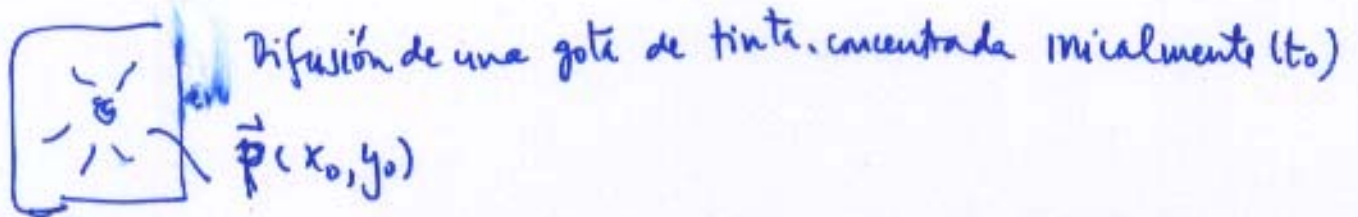 Difusión de una gota de tinta. concentrada inicalmente (t₀)
en
p⃗(x₀, y₀)